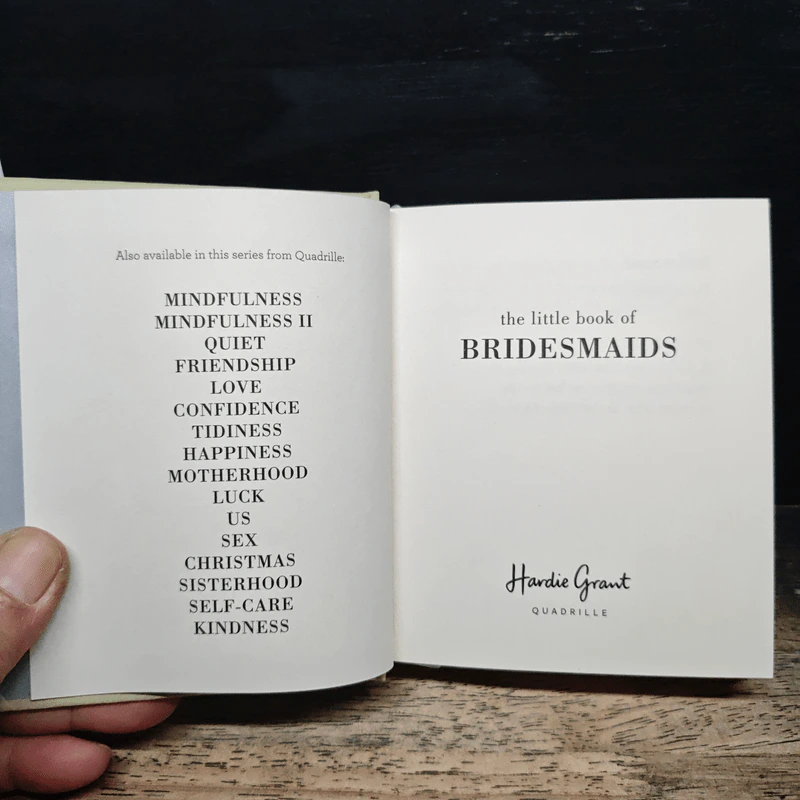 Also available in this series from Quadrille:
MINDFULNESS
MINDFULNESS II
QUIET
FRIENDSHIP
LOVE
CONFIDENCE
TIDINESS
HAPPINESS
MOTHERHOOD
LUCK
US
SEX
CHRISTMAS
SISTERHOOD
SELF-CARE
KINDNESS
the little book of
BRIDESMAIDS
Hardie Grant
QUADRILLE